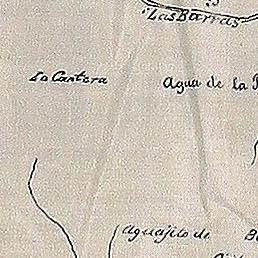 Las Barras
La Cantera
Agua de la
Aguajito de